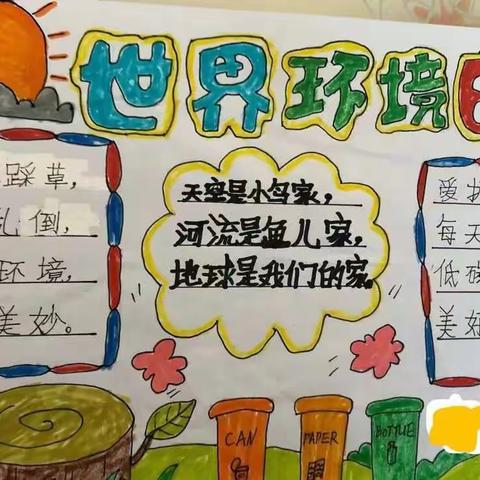 世界环境日
踩草,
乱倒,
环境,
美妙。
天空是小鸟家,
河流是鱼儿家,
地球是我们的家。
爱护
每天
低碳
美好
CAN
PAPER
BOTTLE